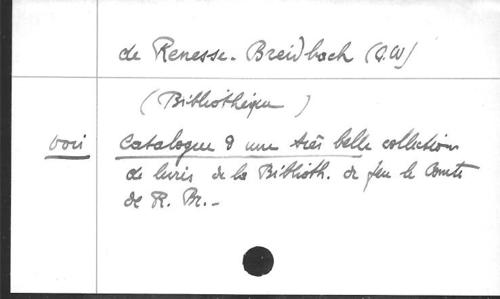 de Renesse-Breidbach (C.W)
(Bibliothèque)
Voir Catalogue d'une très belle collection
de livres de la Biblioth. de feu le Comte
de R. Br.-